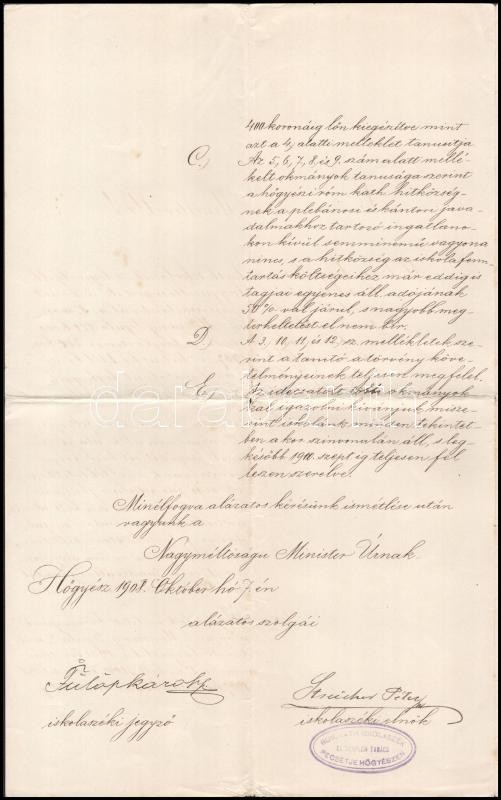 400 koronáig lőn kiegészitve mint
azt a 4, alatti melléklet tanusitja
C.) Az 5, 6, 7, 8, és 9. szám alatt mellé-
kelt okmányok tanusága szerint
a hőgyészi róm kath. hitközség-
nek a plébánosi és kántori java-
dalmakhoz tartozó ingatlano-
kon kivül semminemű vagyona
nincs, s a hitközség az iskola fenn-
tartás költségeihez már eddig is
tagjai egyenes áll. adójának
50%-val járul, s nagyobb meg-
terheltetést el nem bir.
D.) A 3, 10, 11, és 12, sz. mellékletek sze-
rint a tanító a törvény köve-
telményeinek teljesen megfelel.
E.) Az idecsatolt okmányok
kal igazolni kivánjuk misze-
rint iskolánk minden tekintet-
ben a kor szinvonalán áll, s leg-
később 1910. szept ig teljesen fel
leszen szerelve.
Minélfogva alázatos kérésünk ismétlése után
vagyunk a
Nagyméltóságu Minister Úrnak
Hőgyész 1908. Október hó 7.én
alázatos szolgái
Fülöp Károly
iskolaszéki jegyző
Streicher Péter
iskolaszéki elnök
RÓM. KATH. ISKOLASZÉK
PECSÉTJE HŐGYÉSZEN
darabanth